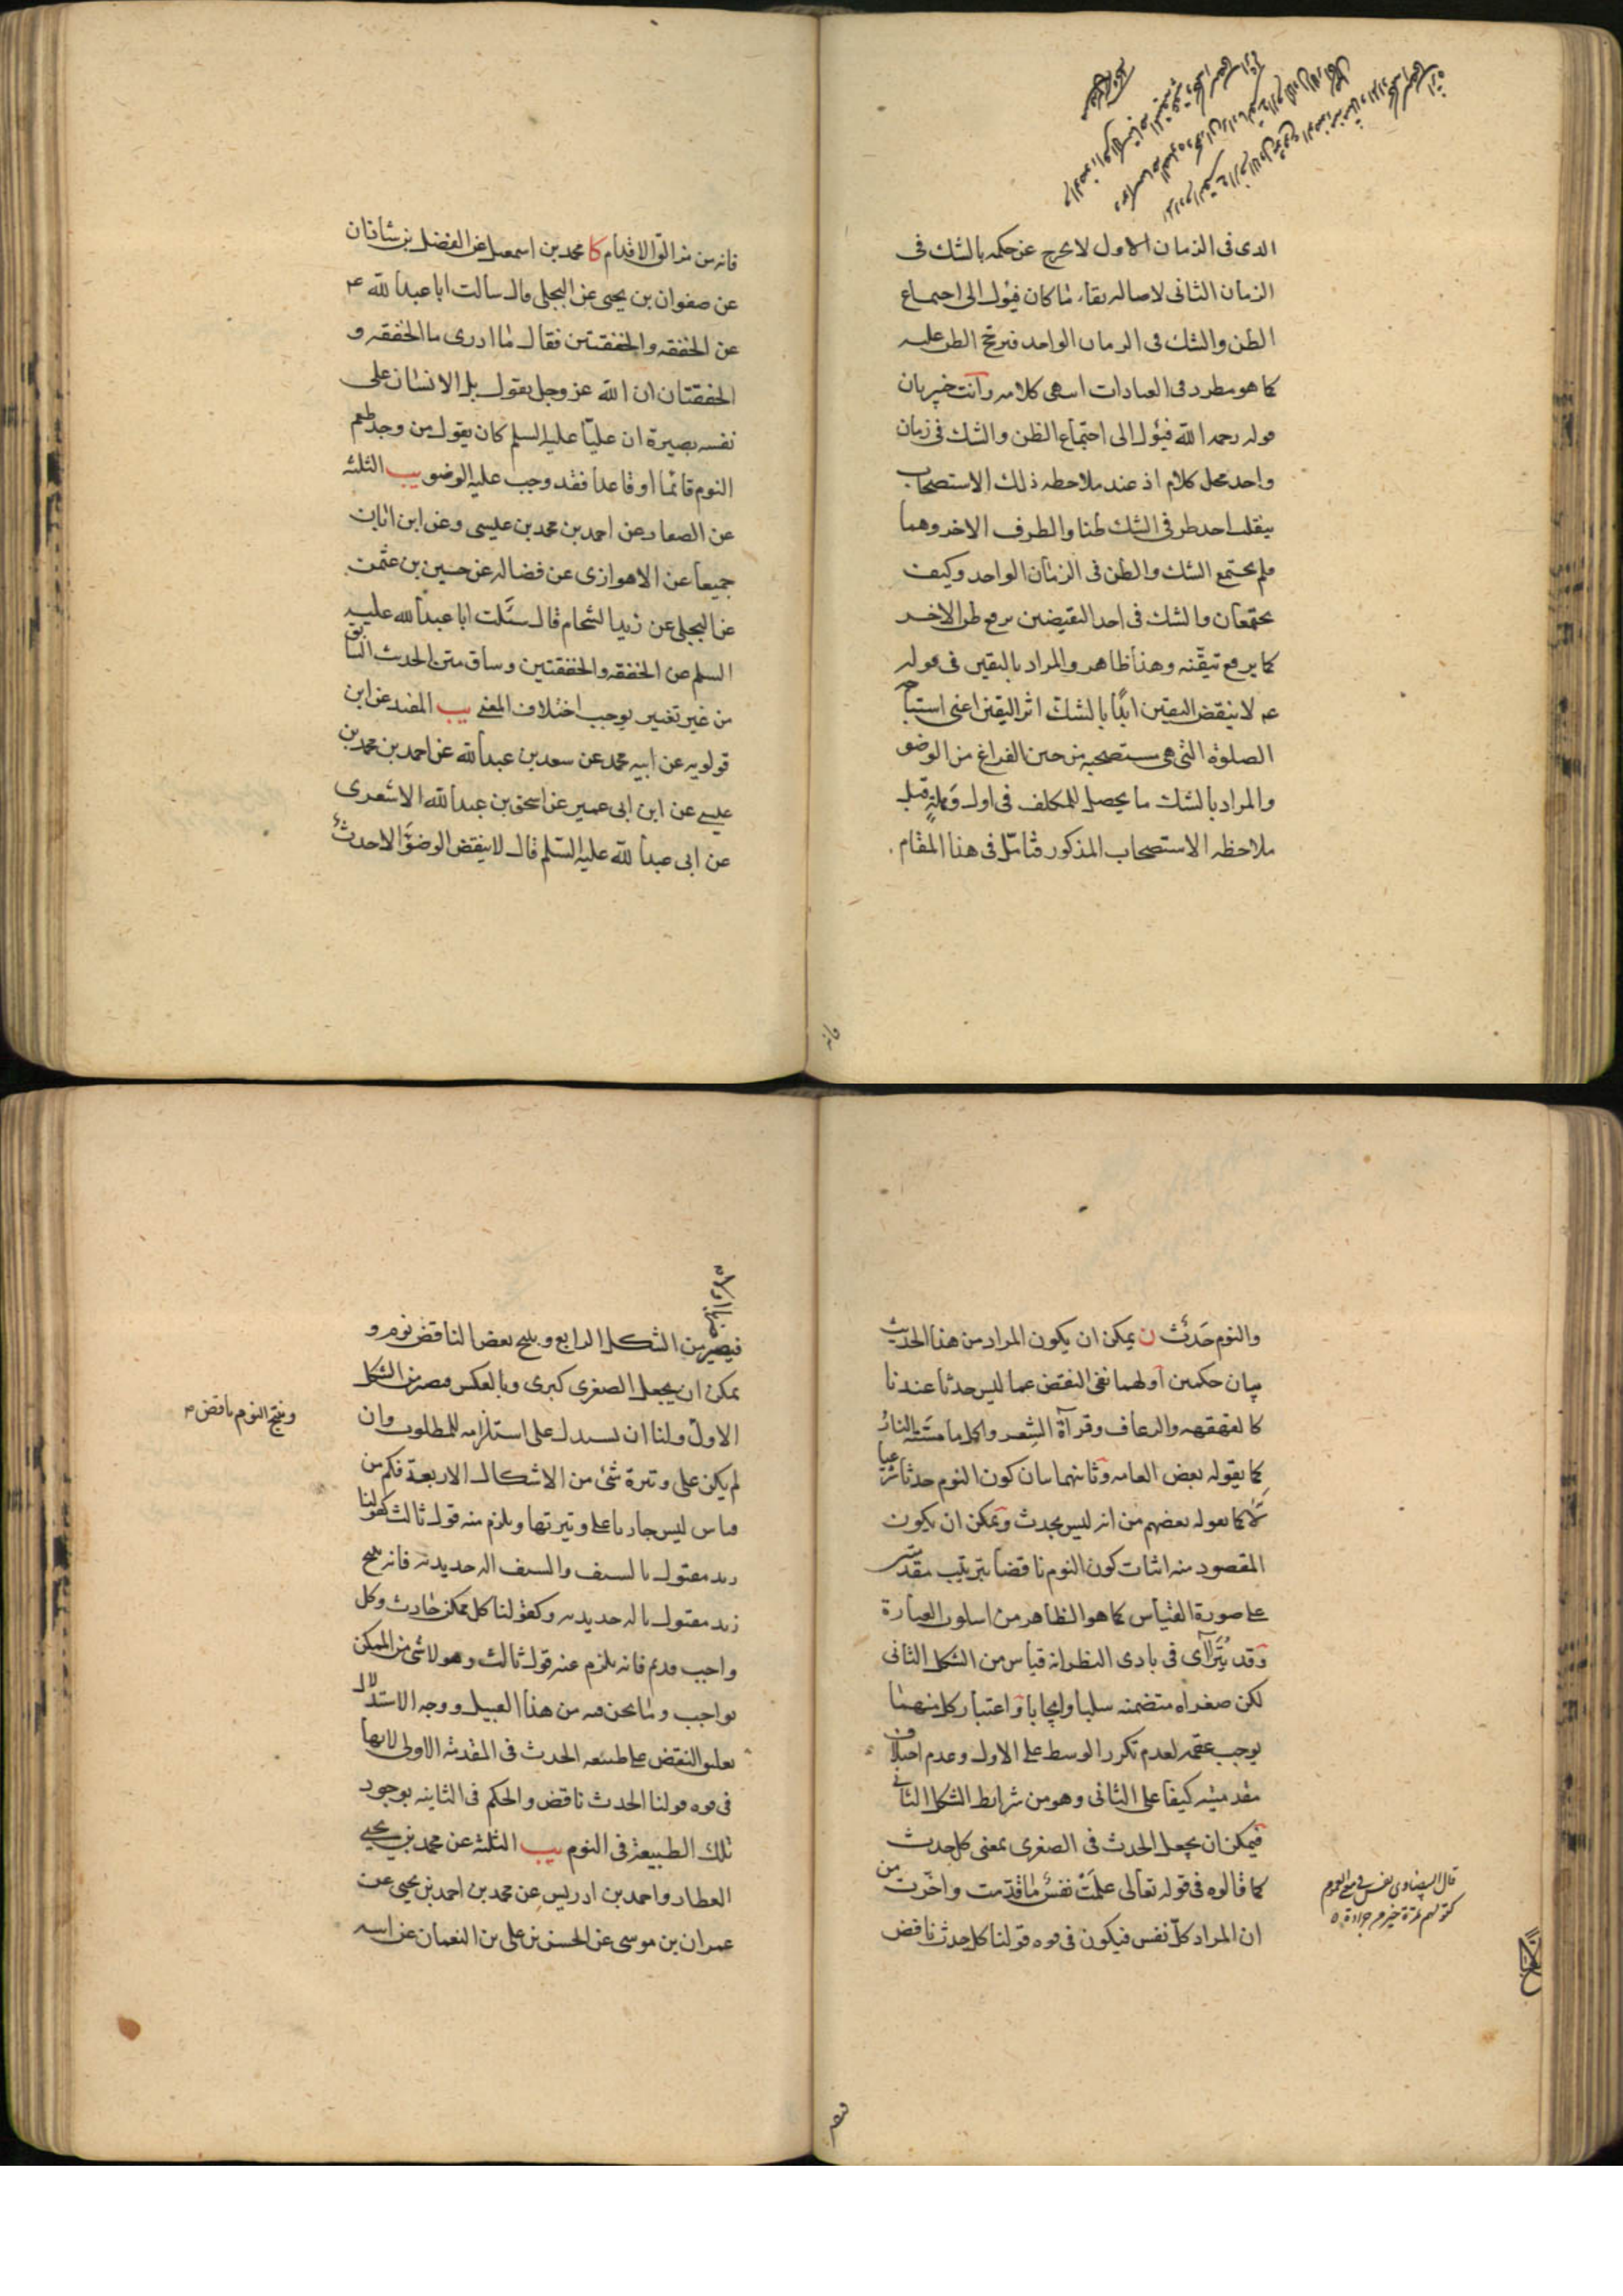 الذى فى الزمان الاول لا يخرج عن حكمه بالشك فى
الزمان الثانى لاصاله بقاء ما كان فيؤل الى اجتماع
الظن والشك فى الزمان الواحد فيرجح الظن عليه
كما هو مطرد فى العبادات انتهى كلامه وانت خبير بان
قوله رحمه الله فيؤل الى اجتماع الظن والشك فى زمان
واحد محل كلام اذ عند ملاحظه ذلك الاستصحاب
ينقلب احد طرفى الشك ظنا والطرف الاخر وهما
فلم يجتمع الشك والظن فى الزمان الواحد وكيف
يجتمعان والشك فى احد النقيضين يرفع ظن الاخر
كما يرفع تيقنه وهذا ظاهر والمراد باليقين فى قوله
عم لا ينقض اليقين ابدًا بالشك اثر اليقين اعنى استباحه
الصلوة التى هى مستصحبه من حين الفراغ من الوضوء
والمراد بالشك ما يحصل للمكلف فى اول وهلةٍ قبل
ملاحظه الاستصحاب المذكور فتأمّل فى هذا المقام
فانه
فانه من مزالّ الاقدام كا محمد بن اسمعيل عن الفضل بن شاذان
عن صفوان بن يحيى عن البجلى قال سالت ابا عبد الله ع
عن الخفقه والخفقتين فقال ما ادرى ما الخفقه و
الخفقتان ان الله عز وجل يقول بل الانسان على
نفسه بصيرة ان عليّا عليه السلم كان يقول من وجد طعم
النوم قائما او قاعدا فقد وجب عليه الوضو يب الثلثه
عن الصفار عن احمد بن محمد بن عيسى وعن ابن ابان
جميعا عن الاهوازى عن فضاله عن حسين بن عثمن
عن البجلى عن زيد الشحام قال سئلت ابا عبد الله عليه
السلم عن الخفقه والخفقتين وساق متن الحديث السابق
من غير تغيير يوجب اختلاف المعنى يب المفيد عن ابن
قولويه عن ابيه محمد عن سعد بن عبد الله عن احمد بن محمد بن
عيسى عن ابن ابى عمير عن اسحق بن عبد الله الاشعرى
عن ابى عبد الله عليه السّلم قال لا ينقض الوضوَّ الا حدثٌ
والنوم حَدَثٌ ن يمكن ان يكون المراد من هذا الحديث
بيان حكمين اولهما نفى النقض عما ليس حدثا عندنا
كالقهقهه والرعاف وقرآة الشِعر واكل ما مسّته النارُ
كما يقوله بعض العامه وثانيهما بيان كون النوم حدثا شرعيا
لا كما يقوله بعضهم من انه ليس بحدث ويمكن ان يكون
المقصود منه اثبات كون النوم ناقضا بترتيب مقدمتين
على صورة القياس كما هو الظاهر من اسلوب العبارة
وقد يُتَرَاآى فى بادى النظر انه قياس من الشكل الثانى
لكن صغراه متضمنه سلبا وايجابا واعتبار كل منهما
يوجب عقمه لعدم تكرر الوسط على الاول وعدم اختلاف
مقدمتيه كيفا على الثانى وهو من شرايط الشكل الثانى
فيمكن ان يجعل الحدث فى الصغرى بمعنى كل حدث
كما قالوه فى قوله تعالى علمَتْ نفسٌ ما قدّمت واخّرت من
ان المراد كلّ نفس فيكون فى قوه قولنا كل حدث ناقض
قال البيضاوى نفس فى معنى العموم
كقولهم تمرة خير من جرادة
فيصير
فيصير من الشكل الرابع وينتج بعض الناقض نوم و
يمكن ان يجعل الصغرى كبرى وبالعكس فيصير من الشكل
الاول ولنا ان نستدل على استلزامه للمطلوب وان
وينتج النوم ناقض
لم يكن على وتيرة شئ من الاشكال الاربعة فكم من
قياس ليس جاريا على وتيرتها ويلزم منه قول ثالث كقولنا
زيد مقتول بالسيف والسيف اله حديديه فانه ينتج
زيد مقتول باله حديديه وكقولنا كل ممكن حادث وكل
واجب قديم فانه يلزم عنه قول ثالث وهو لا شئ من الممكن
بواجب وما نحن فيه من هذا القبيل ووجه الاستدلال
تعليق النقض على طبيعه الحدث فى المقدمه الاولى لانها
فى قوه قولنا الحدث ناقض والحكم فى الثانيه بوجود
تلك الطبيعة فى النوم يب الثلثه عن محمد بن يحيى
العطار واحمد بن ادريس عن محمد بن احمد بن يحيى عن
عمران بن موسى عن الحسن بن على بن النعمان عن ابيه